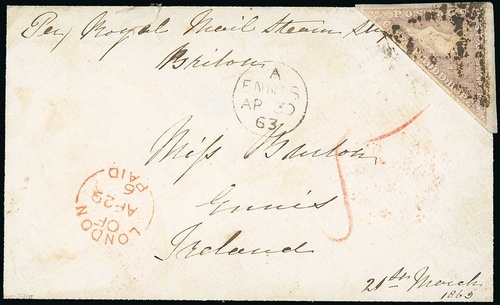 Per Royal Mail Steam Ship
Briton
A
ENNIS
AP 30
63
Miss Burton
Ennis
Ireland
LONDON
OF
AP 29
PAID
21st March
1863